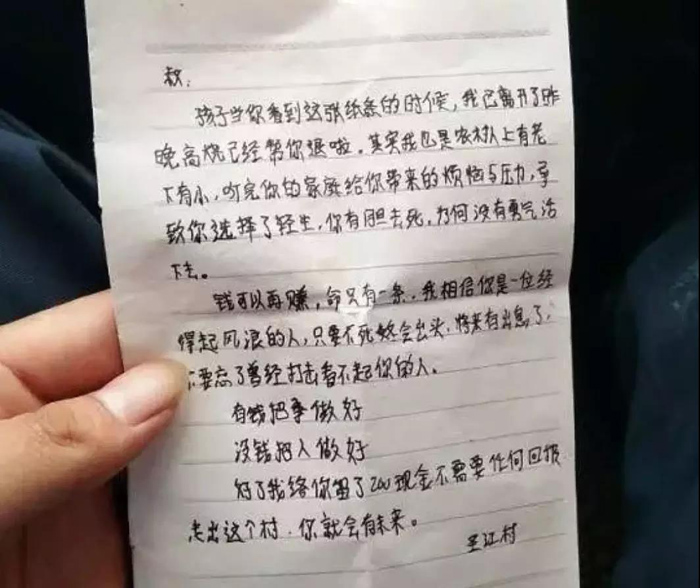 叔:
孩子当你看到这张纸条的时候,我已离开了昨
晚高烧已经帮你退啦.其实我也是农村人上有老
下有小,听完你的家庭给你带来的烦恼与压力,导
致你选择了轻生,你有胆去死,为何没有勇气活
下去。
钱可以再赚,命只有一条,我相信你是一位经
得起风浪的人,只要不死终会出头,将来有出息了,
不要忘了曾经打击看不起你的人.
有钱把事做好
没钱把人做好
对了我给你留了200现金不需要任何回报
走出这个村.你就会有未来。
江村